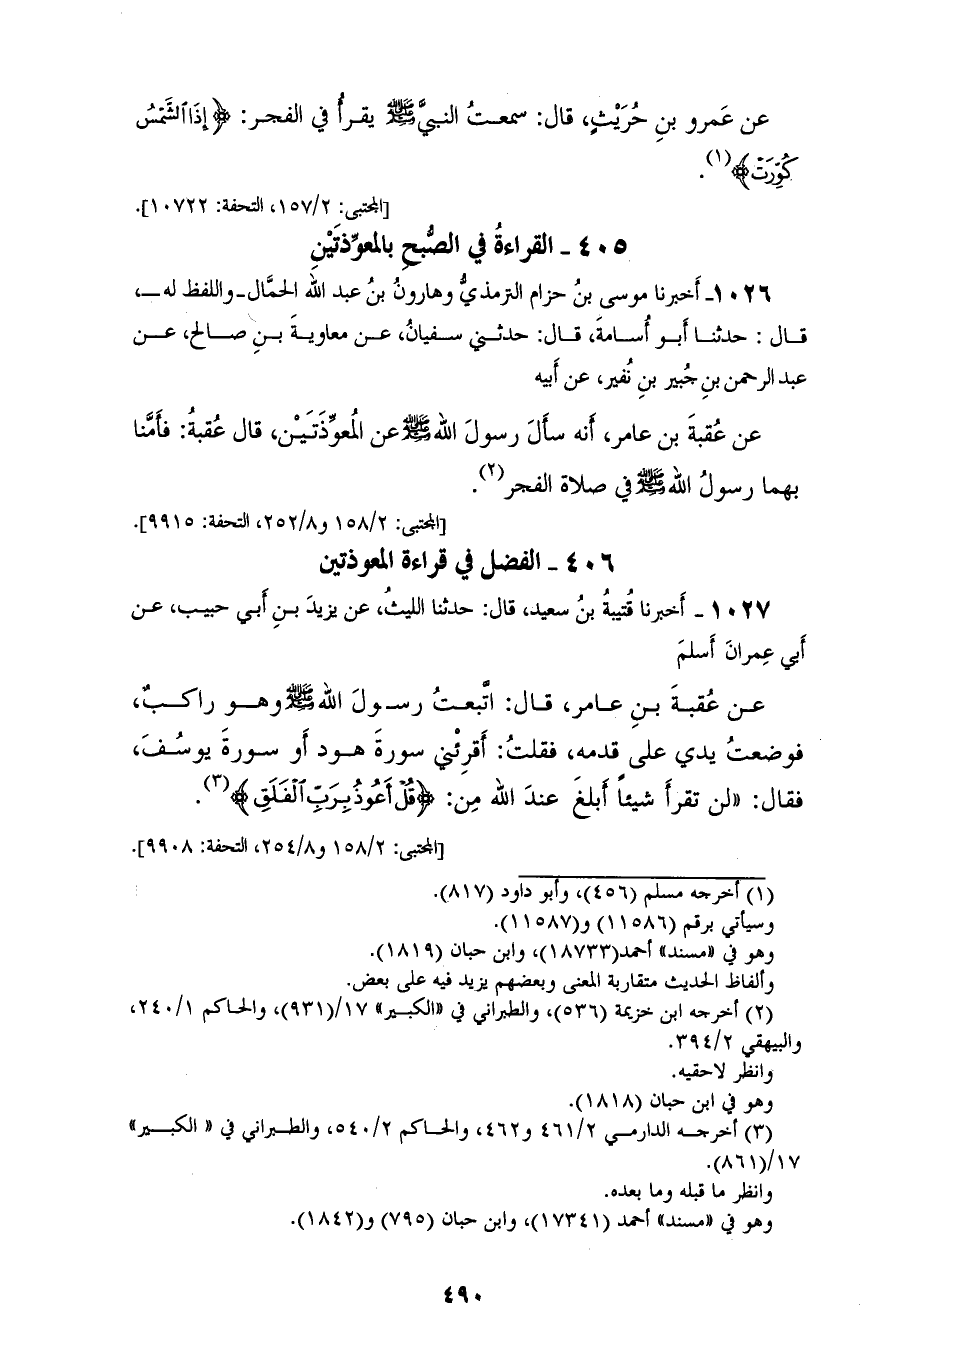 عن عَمرو بنِ حُرَيْثٍ، قال: سمعتُ النبيَّ ﷺ يقرأُ في الفجر: ﴿إِذَا ٱلشَّمْسُ
كُوِّرَتْ﴾(١).
[المجتبى: ١٥٧/٢، التحفة: ١٠٧٢٢].
٤٠٥ ـ القراءةُ في الصُّبحِ بالمعوِّذَتَيْنِ
١٠٢٦ـ أَخبرنا موسى بنُ حزام الترمذيُّ وهارونُ بنُ عبد الله الحمَّال ـ واللفظ له ـ،
قال : حدثنا أَبو أُسامةَ، قال: حدثني سفيانُ، عن معاويةَ بنِ صالح، عن
عبد الرحمن بنِ جُبير بنِ نُفير، عن أَبيه
عن عُقبةَ بن عامر، أَنه سأَلَ رسولَ الله ﷺ عن المُعوِّذَتَيْن، قال عُقبةُ: فأَمَّنا
بهما رسولُ الله ﷺ في صلاة الفجر(٢).
[المجتبى: ١٥٨/٢ و٢٥٢/٨، التحفة: ٩٩١٥].
٤٠٦ ـ الفضل في قراءة المعوذتين
١٠٢٧ ـ أَخبرنا قُتيبةُ بنُ سعيد، قال: حدثنا الليثُ، عن يزيدَ بنِ أَبي حبيب، عن
أَبي عِمرانَ أَسلمَ
عن عُقبةَ بنِ عامر، قال: اتَّبعتُ رسولَ الله ﷺ وهو راكبٌ،
فوضعتُ يدي على قدمه، فقلتُ: أَقرِئْني سورةَ هود أَو سورةَ يوسُفَ،
فقال: «لن تقرأَ شيئاً أَبلغَ عندَ الله مِن: ﴿قُلْ أَعُوذُ بِرَبِّ ٱلْفَلَقِ﴾(٣).
[المجتبى: ١٥٨/٢ و٢٥٤/٨، التحفة: ٩٩٠٨].
(١) أخرجه مسلم (٤٥٦)، وأبو داود (٨١٧).
وسيأتي برقم (١١٥٨٦) و(١١٥٨٧).
وهو في «مسند» أحمد(١٨٧٣٣)، وابن حبان (١٨١٩).
وألفاظ الحديث متقاربة المعنى وبعضهم يزيد فيه على بعض.
(٢) أخرجه ابن خزيمة (٥٣٦)، والطبراني في «الكبير» ١٧/(٩٣١)، والحاكم ٢٤٠/١،
والبيهقي ٣٩٤/٢.
وانظر لاحقيه.
وهو في ابن حبان (١٨١٨).
(٣) أخرجه الدارمي ٤٦١/٢ و٤٦٢، والحاكم ٥٤٠/٢، والطبراني في « الكبير»
١٧/(٨٦١).
وانظر ما قبله وما بعده.
وهو في «مسند» أحمد (١٧٣٤١)، وابن حبان (٧٩٥) و(١٨٤٢).
٤٩٠